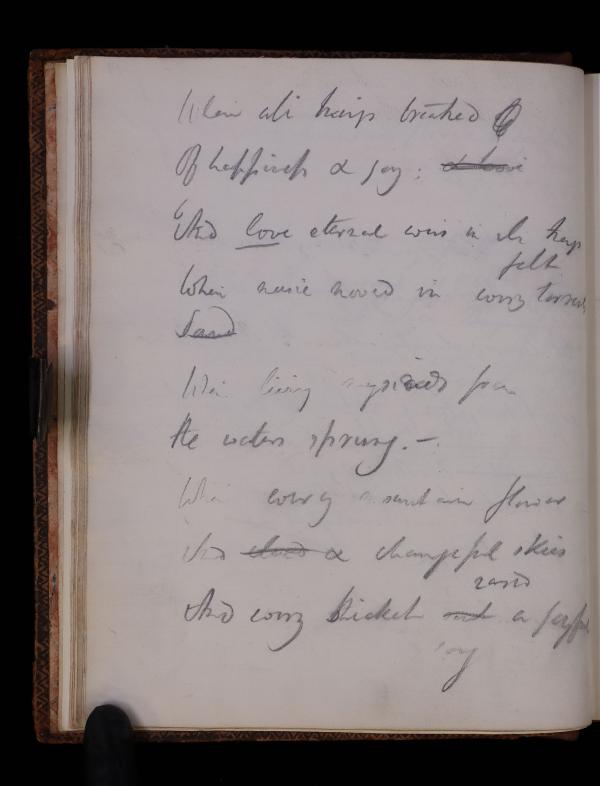 When all harps breathed
Of happiness & joy:
And love eternal was in the harp
felt
When music moved in every
Land
When living from
the waters sprung. —
When every mountain flower
And & changeful skies
rais'd
And every thicket a joyful
joy